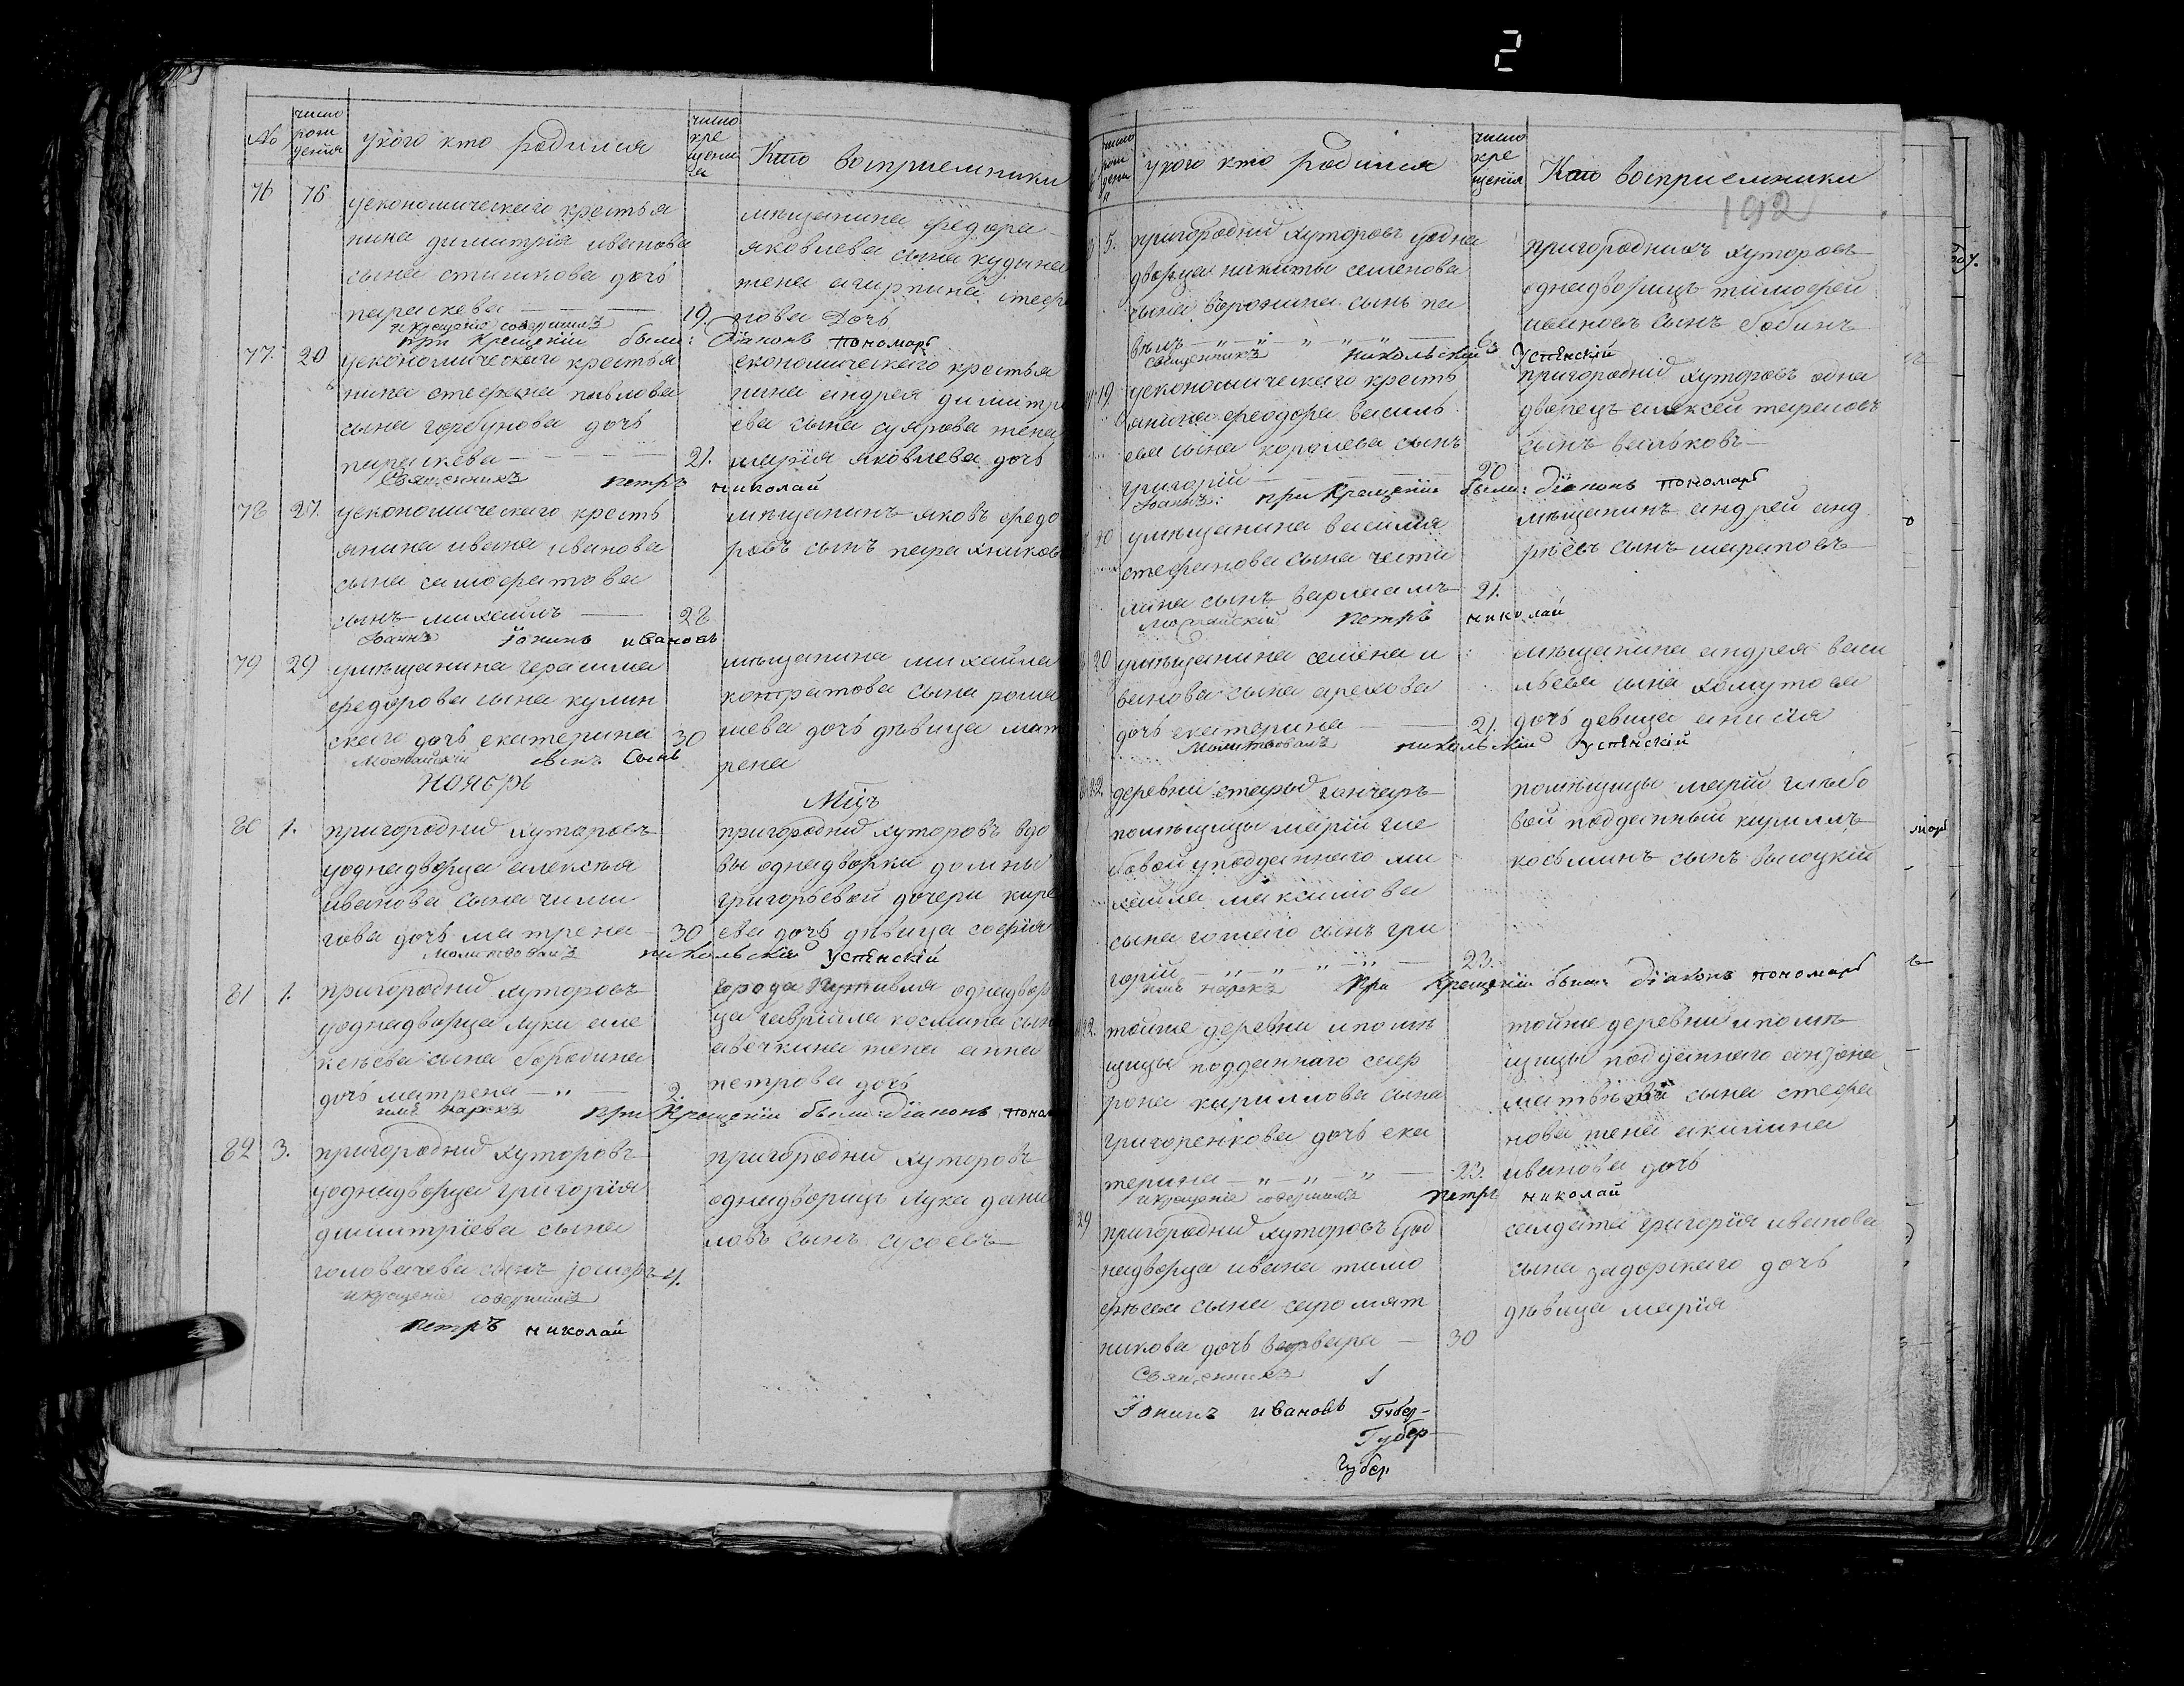 2
№ число рождения у кого кто родился число крещения Кто восприемники
76 16 уекономическаго крестья
нина димитрия иванова
сына сташкова дочь
параскева 19
мѣщанина федора
яковлева сына кудина
жена агирпина стеф
нова дочь
и крещение совершилъ
при крещении были: Дїаконъ пономарь
77. 20 уекономическаго крестья
нина стефана павлова
сына горбунова дочь
параскева 21.
економическаго крестья
нина андрея димитри
ева сына суярова жена
марїя яковлева дочь
Священникъ петръ николай
78 27. уекономическаго кресть
янина ивана иванова
сына самофатова
сынъ михаилъ 28
мѣщанинъ яковъ федо
ровъ сынъ
Іоаннъ Їонинъ ивановъ
79 29 умѣщанина герасима
федорова сына кулин
скаго дочь екатерина 30
мѣщанина михайла
контратова сына рома
шева дочь дѣвица мат
рена
Можайскій сынъ
ноябрь Мцъ
80 1. пригородних хуторовъ
уоднадворца алексѣя
иванова сына чими
гова дочь матрена 30
пригородних хуторовъ вдо
вы однадворки домны
григорьевой дочери кире
ева дочь дѣвица софїя
молитвовалъ никольскїй Успѣнскїй
81 1. пригородних хуторовъ
уоднадворца луки але
ксѣева сына бородина
дочь матрена 2.
города Путивля однадвор
ца гаврїила космина сын
авечкина жена анна
петрова дочь
имя нарекъ при крещении были: дїаконъ поном
82 3. пригородних хуторовъ
уоднадворца григорїя
димитрїева сына
головачева сынъ їосифъ 4.
пригородних хуторовъ
однадворецъ лука дани
ловъ сынъ сусоевъ
и крещение совершилъ
петръ николай
число рождения у кого кто родился число крещенїя Кто восприемники
192
5. пригородних хуторовъ уодна
дворца никиты семенова
сына воронина сынъ па
велъ 6
пригороднихъ хуторовъ
однадворецъ тимофей
ивановъ сынъ бобинъ
священникъ никольскїй Успѣнскїй
19 уекономическаго кресть
янина феодора василь
ева сына королева сынъ
григорїй 20
пригородних хуторовъ одна
дворецъ алексей
сынъ вальковъ
Іоаннъ: при крещенїи были: дїаконъ пономарь
20 умѣщанина василїя
стефанова сына чети
лина сынъ варлаамъ 21.
мѣщанинъ андрей анд
рѣевъ сынъ шараповъ
Можайскїй петръ николай
20 умѣщанина семена и
ванова сына арехова
дочь екатерина 21.
мѣщанина андрея васи
льева сына хомутова
дочь девица анисия
молитвовалъ никольскїй Успѣнскїй
22. деревни старых гончаръ
помѣщицы марїи гле
бовой уподданнаго ми
хаила максимова
сына гошаго сынъ гри
горїй 23.
помѣщицы марїи глѣбо
вой подданный кирилъ
косминъ сынъ высоцкїй
имя нарекъ При крещенїи были дїаконъ пономарь
22. тойже деревни ипомѣ
щицы подданнаго саф
рона кирилова сына
григоренкова дочь ека
терина 23.
тойже деревни ипомѣ
щицы подданнаго антона
матвѣева сына стефа
нова жена акилина
иванова дочь
и крещение совершилъ петръ николай
29 пригородних хуторовъ уод
надворца ивана тимо
фѣева сына сыромят
никова дочь варвара 30
салдата григорїя иванова
сына задорскаго дочь
дѣвица марїя
Священникъ
Їонинъ ивановъ Губер-
Губер
Губер